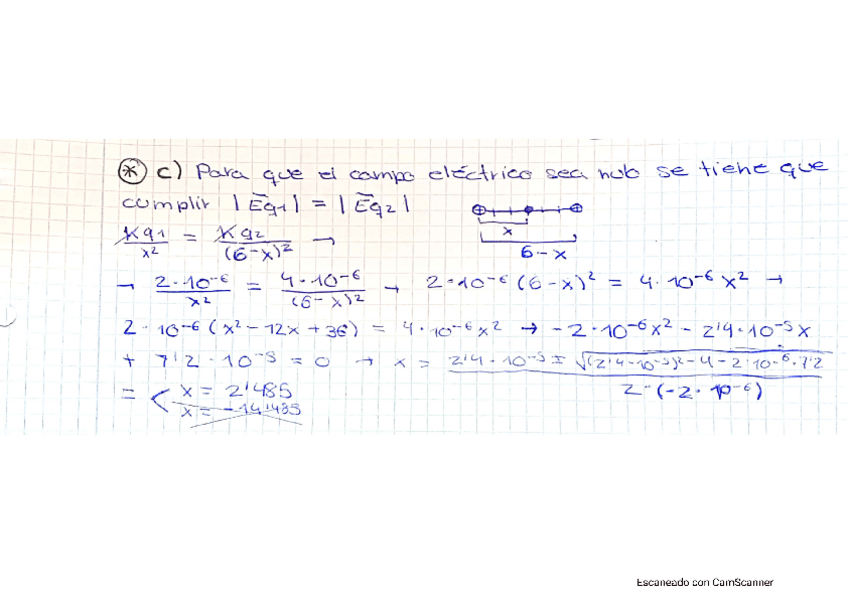 * c) Para que el campo eléctrico sea nulo se tiene que
cumplir |Eq1| = |Eq2|
x
6-x
Kq1/x² = Kq2/(6-x)² →
→ 2·10⁻⁶/x² = 4·10⁻⁶/(6-x)² → 2·10⁻⁶(6-x)² = 4·10⁻⁶x² →
2·10⁻⁶(x²-12x+36) = 4·10⁻⁶x² → -2·10⁻⁶x² - 2'4·10⁻⁵x
+ 7'2·10⁻⁵ = 0 → x = 2'4·10⁻⁵ ± √(2'4·10⁻⁵)²-4·-2·10⁻⁶·7'2
2·(-2·10⁻⁶)
= < x = 2'485
x = -14'485
Escaneado con CamScanner